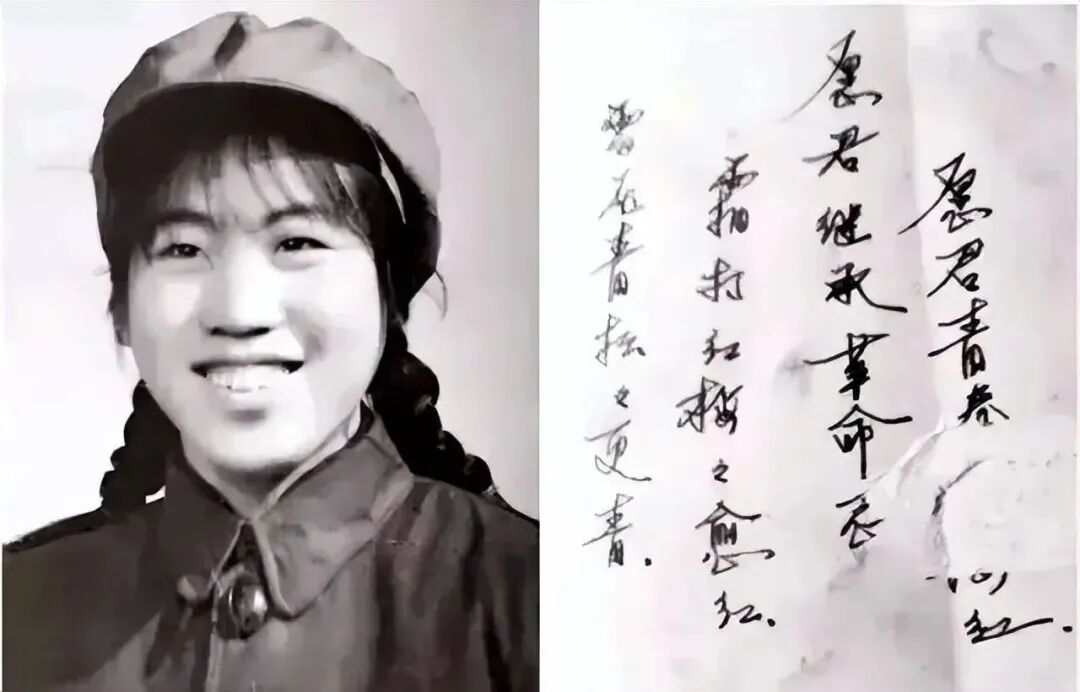 雪压青松々更青.
霜打红梅々愈红.
愿君继承革命
愿君青春心红.